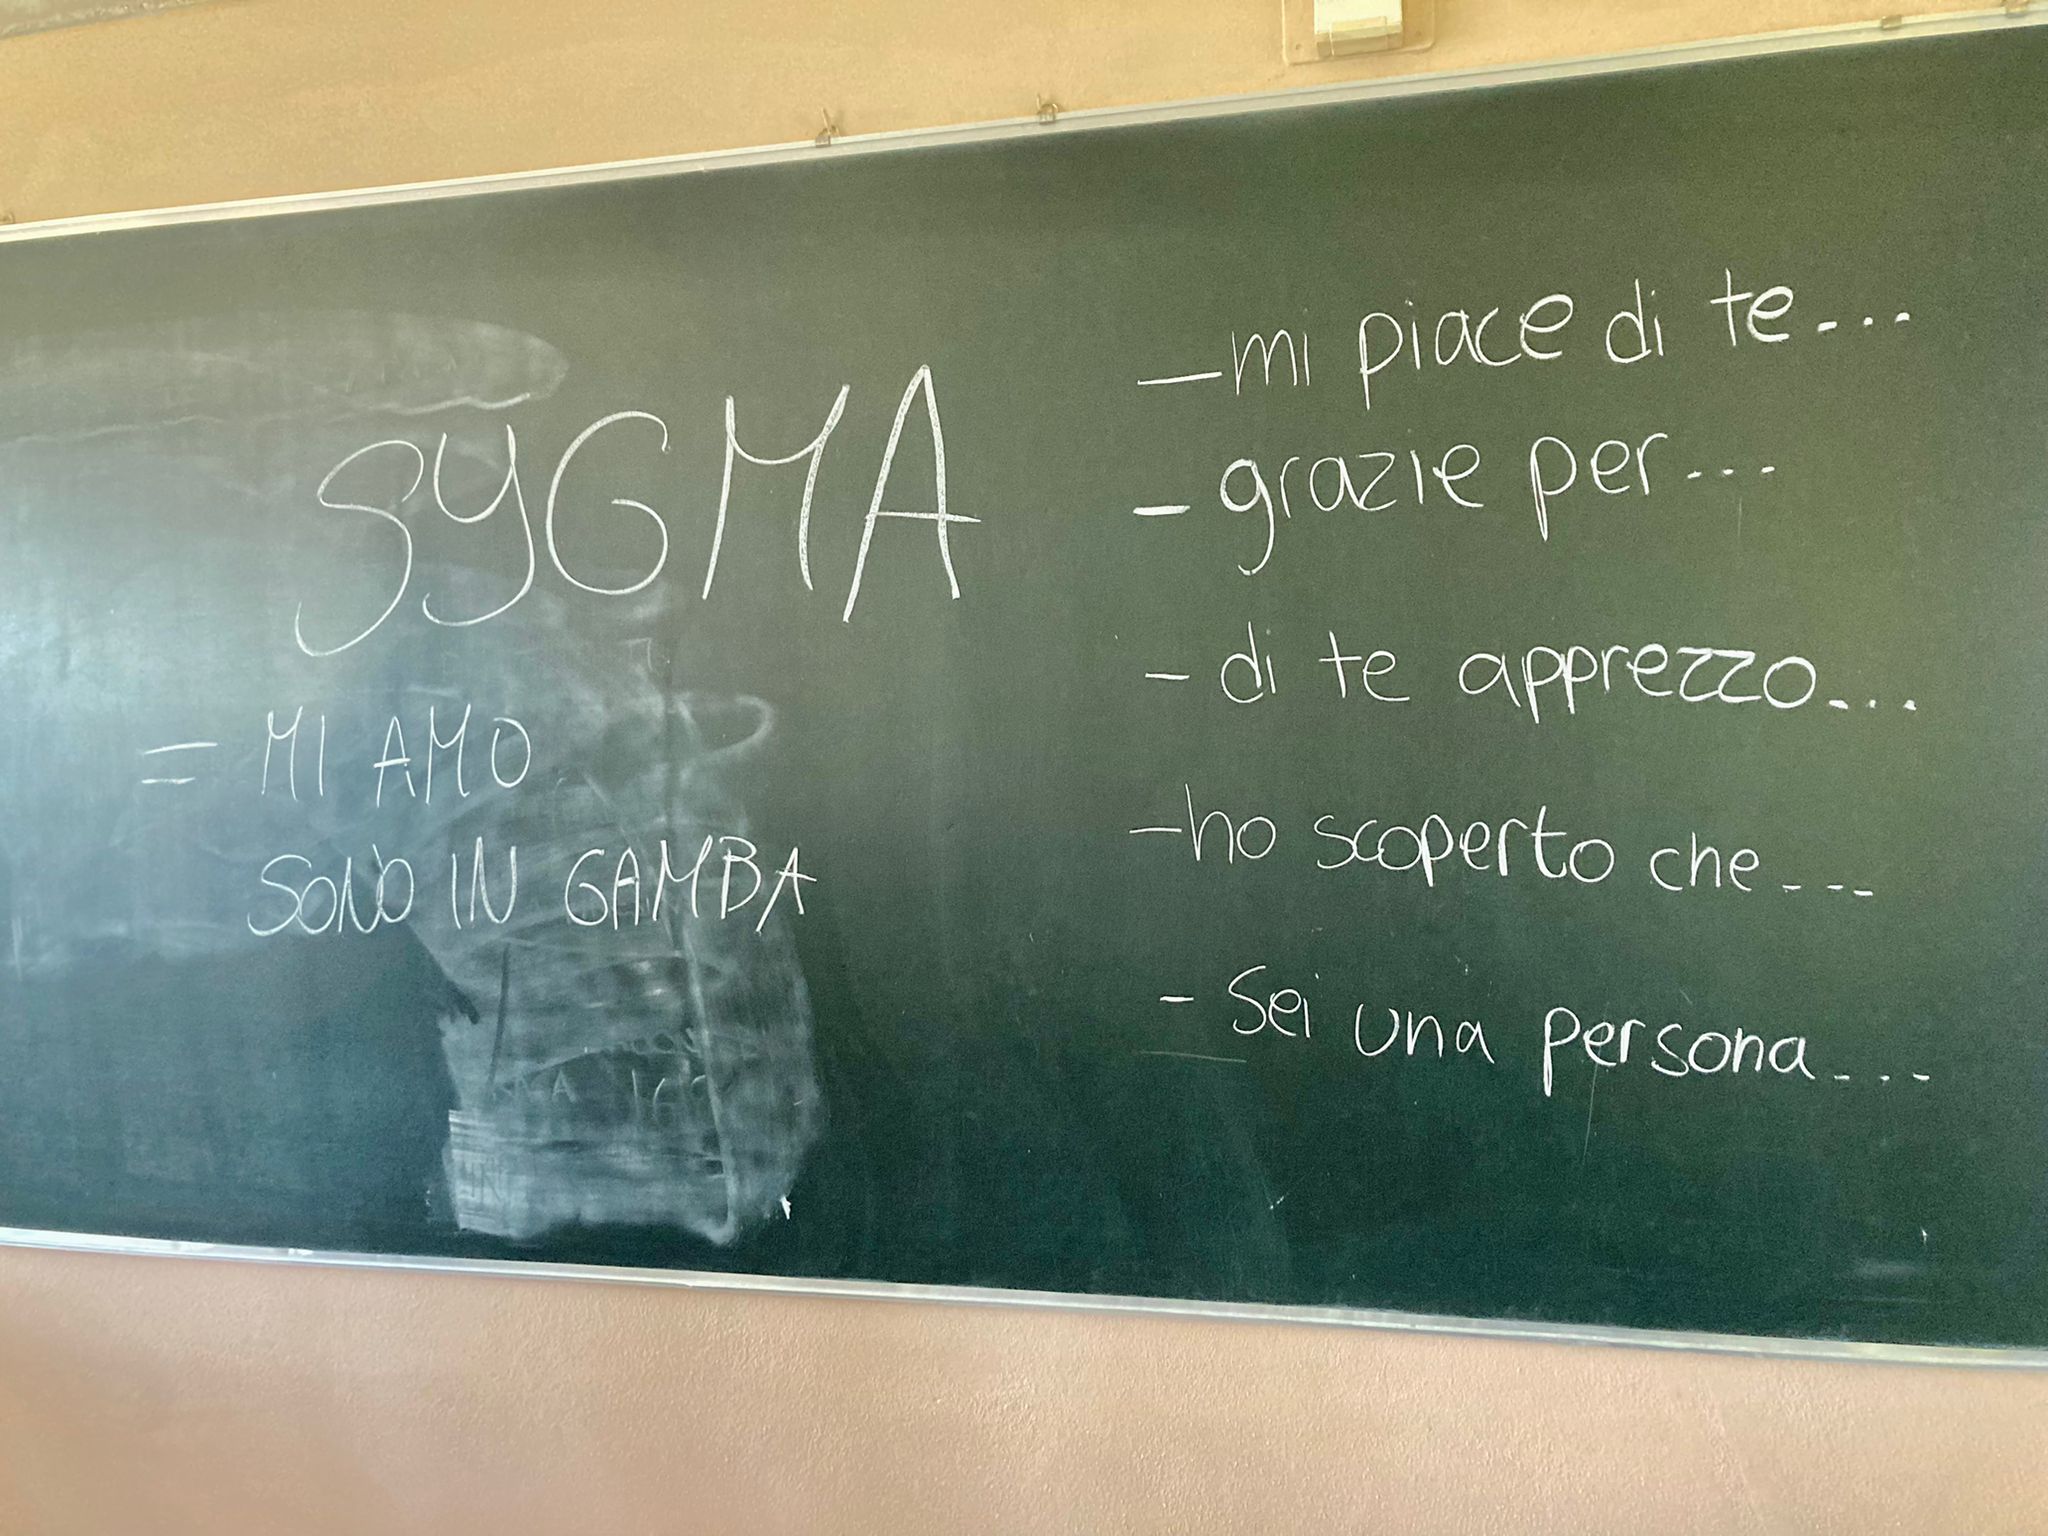 SYGMA
= MI AMO
SONO IN GAMBA
- mi piace di te...
- grazie per...
- di te apprezzo...
- ho scoperto che...
- Sei una persona...